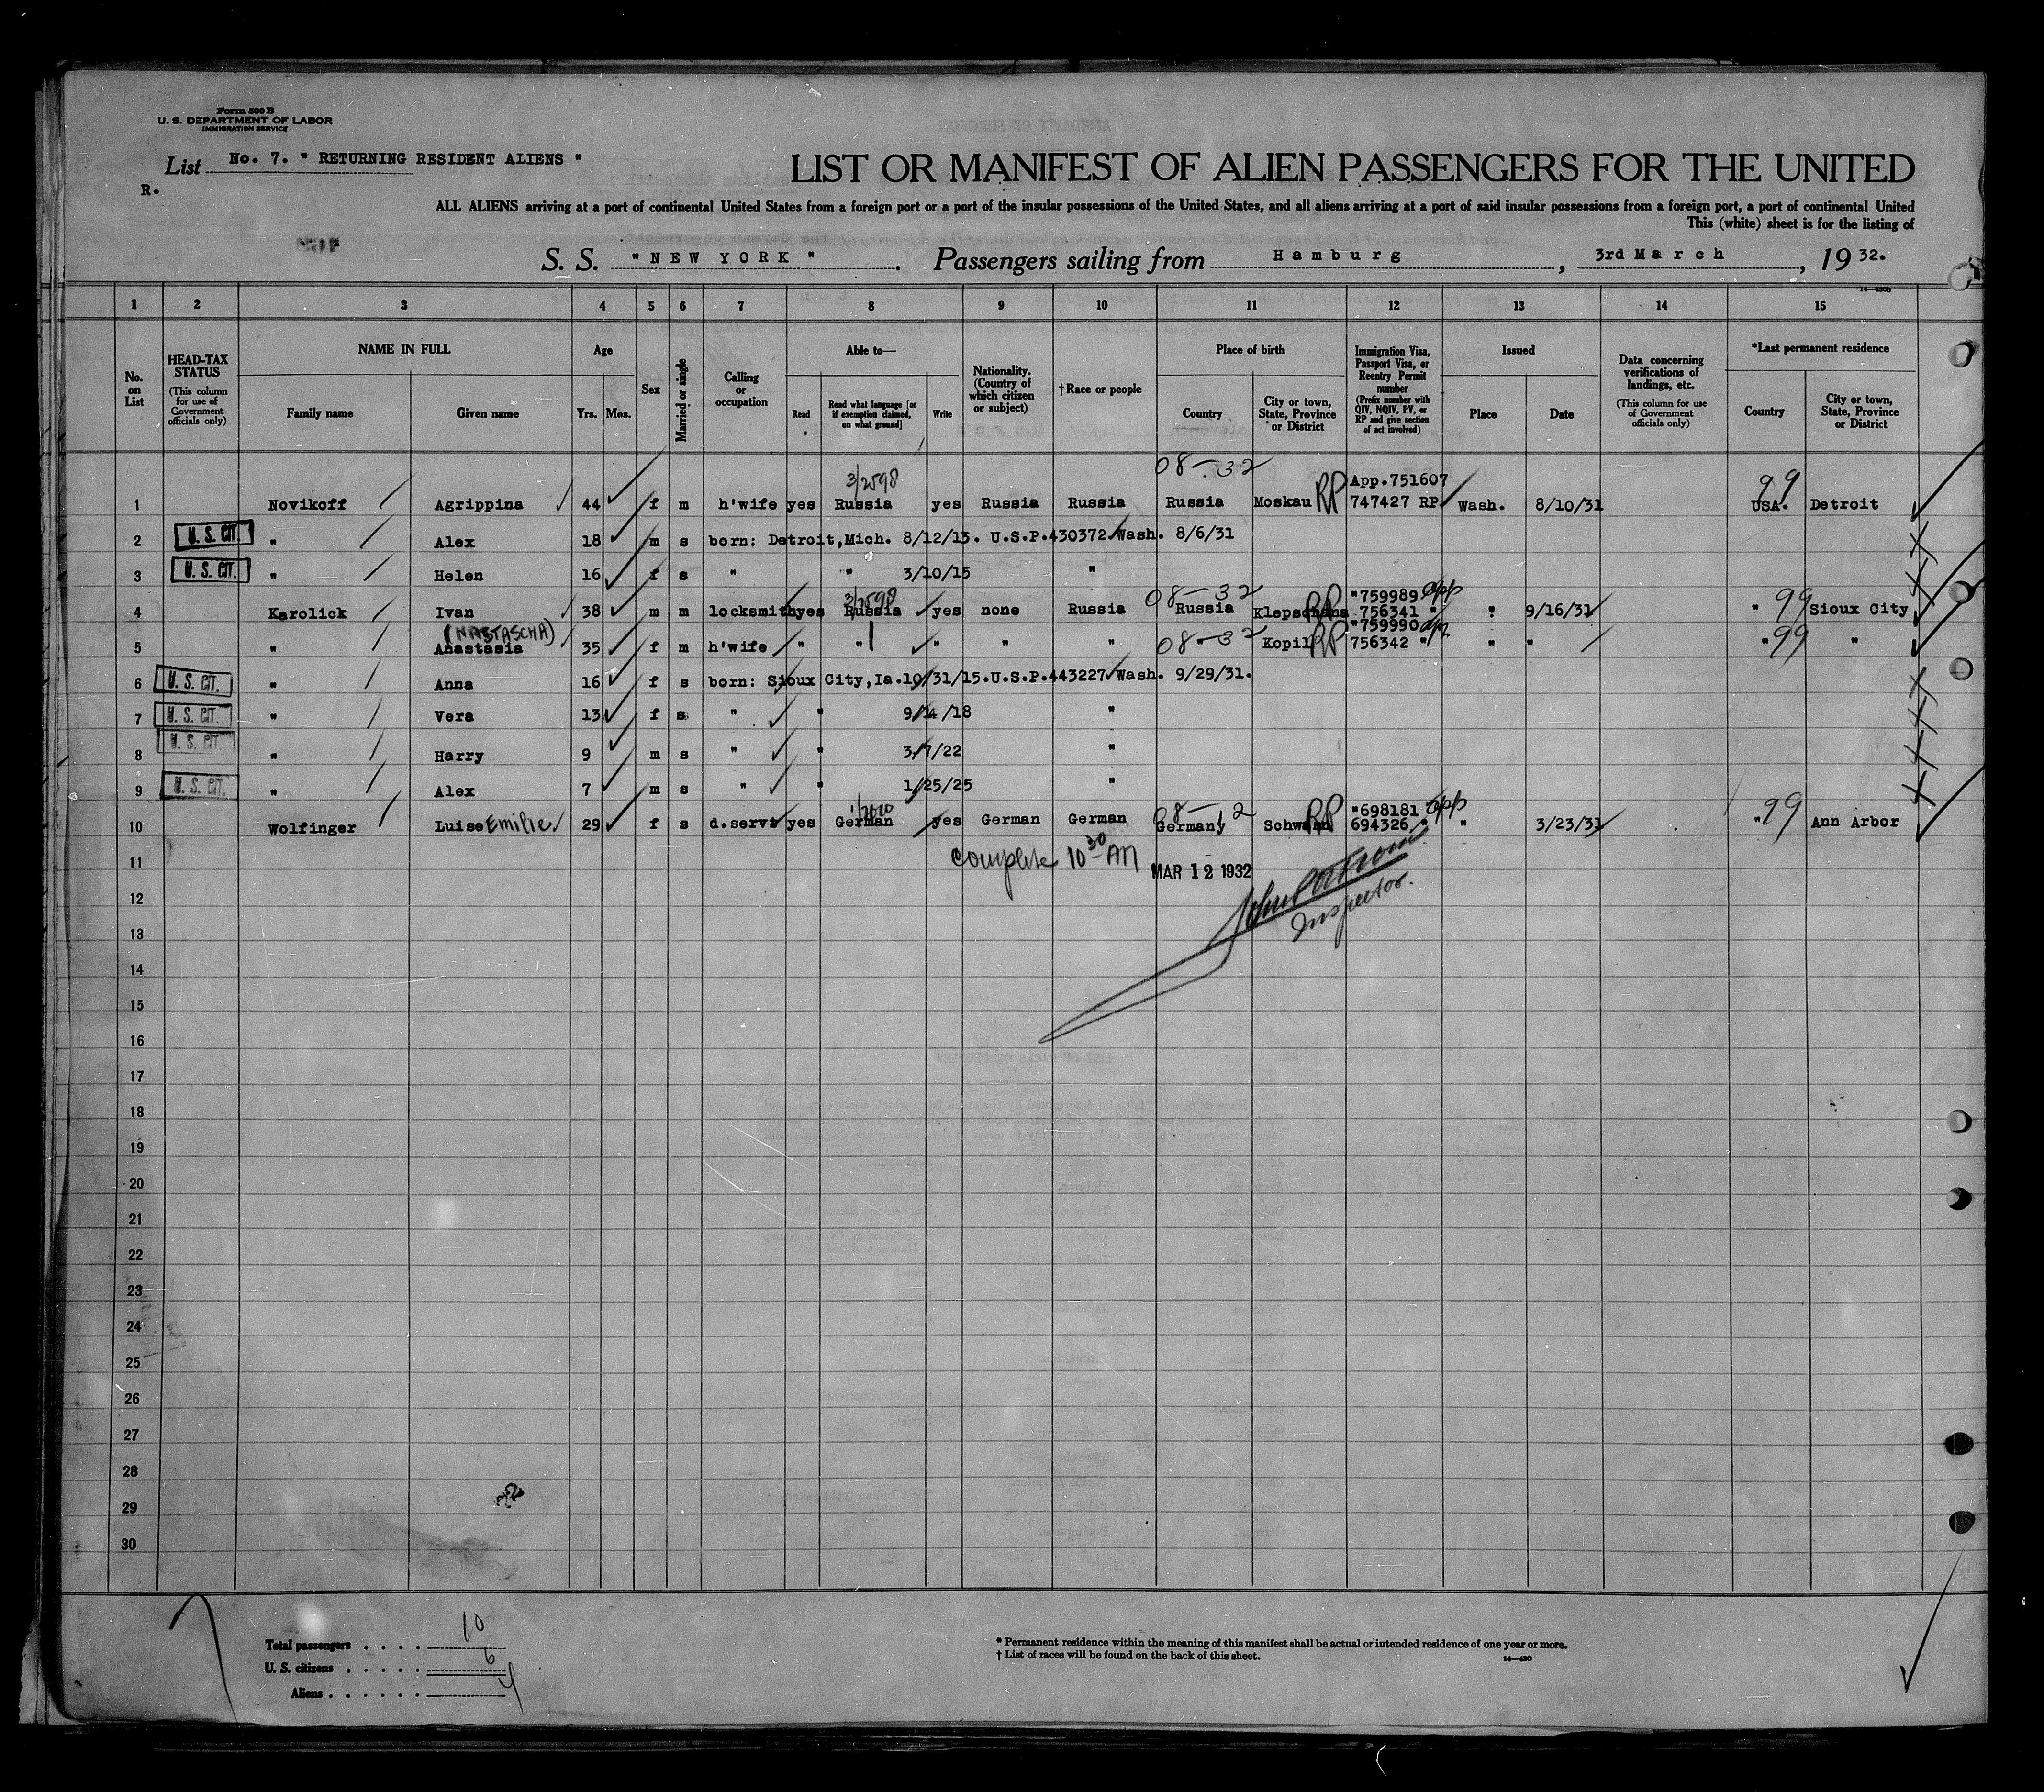 Form 500 B
U. S. DEPARTMENT OF LABOR
IMMIGRATION SERVICE
List No. 7. " RETURNING RESIDENT ALIENS "
R.
LIST OR MANIFEST OF ALIEN PASSENGERS FOR THE UNITED
ALL ALIENS arriving at a port of continental United States from a foreign port or a port of the insular possessions of the United States, and all aliens arriving at a port of said insular possessions from a foreign port, a port of continental United
This (white) sheet is for the listing of
S. S. " NEW YORK ". Passengers sailing from Hamburg, 3rd March, 1932.
1 2 3 4 5 6 7 8 9 10 11 12 13 14 15
No. on List
HEAD-TAX STATUS (This column for use of Government officials only)
NAME IN FULL
Family name
Given name
Age
Yrs. Mos.
Sex
Married or single
Calling or occupation
Able to—
Read
Read what language [or if exemption claimed, on what ground]
Write
Nationality. (Country of which citizen or subject)
† Race or people
Place of birth
Country
City or town, State, Province or District
Immigration Visa, Passport Visa, or Reentry Permit number (Prefix number with QIV, NQIV, PV, or RP and give section of act involved)
Issued
Place
Date
Data concerning verifications of landings, etc. (This column for use of Government officials only)
*Last permanent residence
Country
City or town, State, Province or District
3/2598 08-32 App.751607 99
1 Novikoff Agrippina 44 f m h'wife yes Russia yes Russia Russia Russia Moskau RP 747427 RP Wash. 8/10/31 USA. Detroit
2 U. S. CIT. " Alex 18 m s born: Detroit,Mich. 8/12/13. U.S.P.430372 Wash. 8/6/31
3 U. S. CIT. " Helen 16 f s " " 3/10/15 "
3/2598 08-32 "759989 app
4 Karolick Ivan 38 m m locksmith yes Russia yes none Russia Russia RP 756341 " " 9/16/31 " 99 Sioux City
(NASTASCHA) "759990 app
5 " Anastasia 35 f m h'wife " " " " " 08-32 " Kopil RP 756342 " " " " 99 "
6 U. S. CIT. " Anna 16 f s born: Sioux City,Ia.10/31/15.U.S.P.443227 Wash. 9/29/31.
7 U. S. CIT. " Vera 13 f s " " 9/14/18 "
8 U. S. CIT. " Harry 9 m s " " 3/7/22 "
9 U. S. CIT. " Alex 7 m s " " 1/25/25 "
1/2000 08-12 "698181 app
10 Wolfinger Luise Emilie 29 f s d.servt yes German yes German German Germany RP 694326 " " 3/23/31 " 99 Ann Arbor
11 complete 10 30 AM MAR 12 1932
12 Inspector.
13
14
15
16
17
18
19
20
21
22
23
24
25
26
27
28
29
30
Total passengers . . . . 10
U. S. citizens . . . . . 6
Aliens . . . . . . 4
* Permanent residence within the meaning of this manifest shall be actual or intended residence of one year or more.
† List of races will be found on the back of this sheet.
14—430